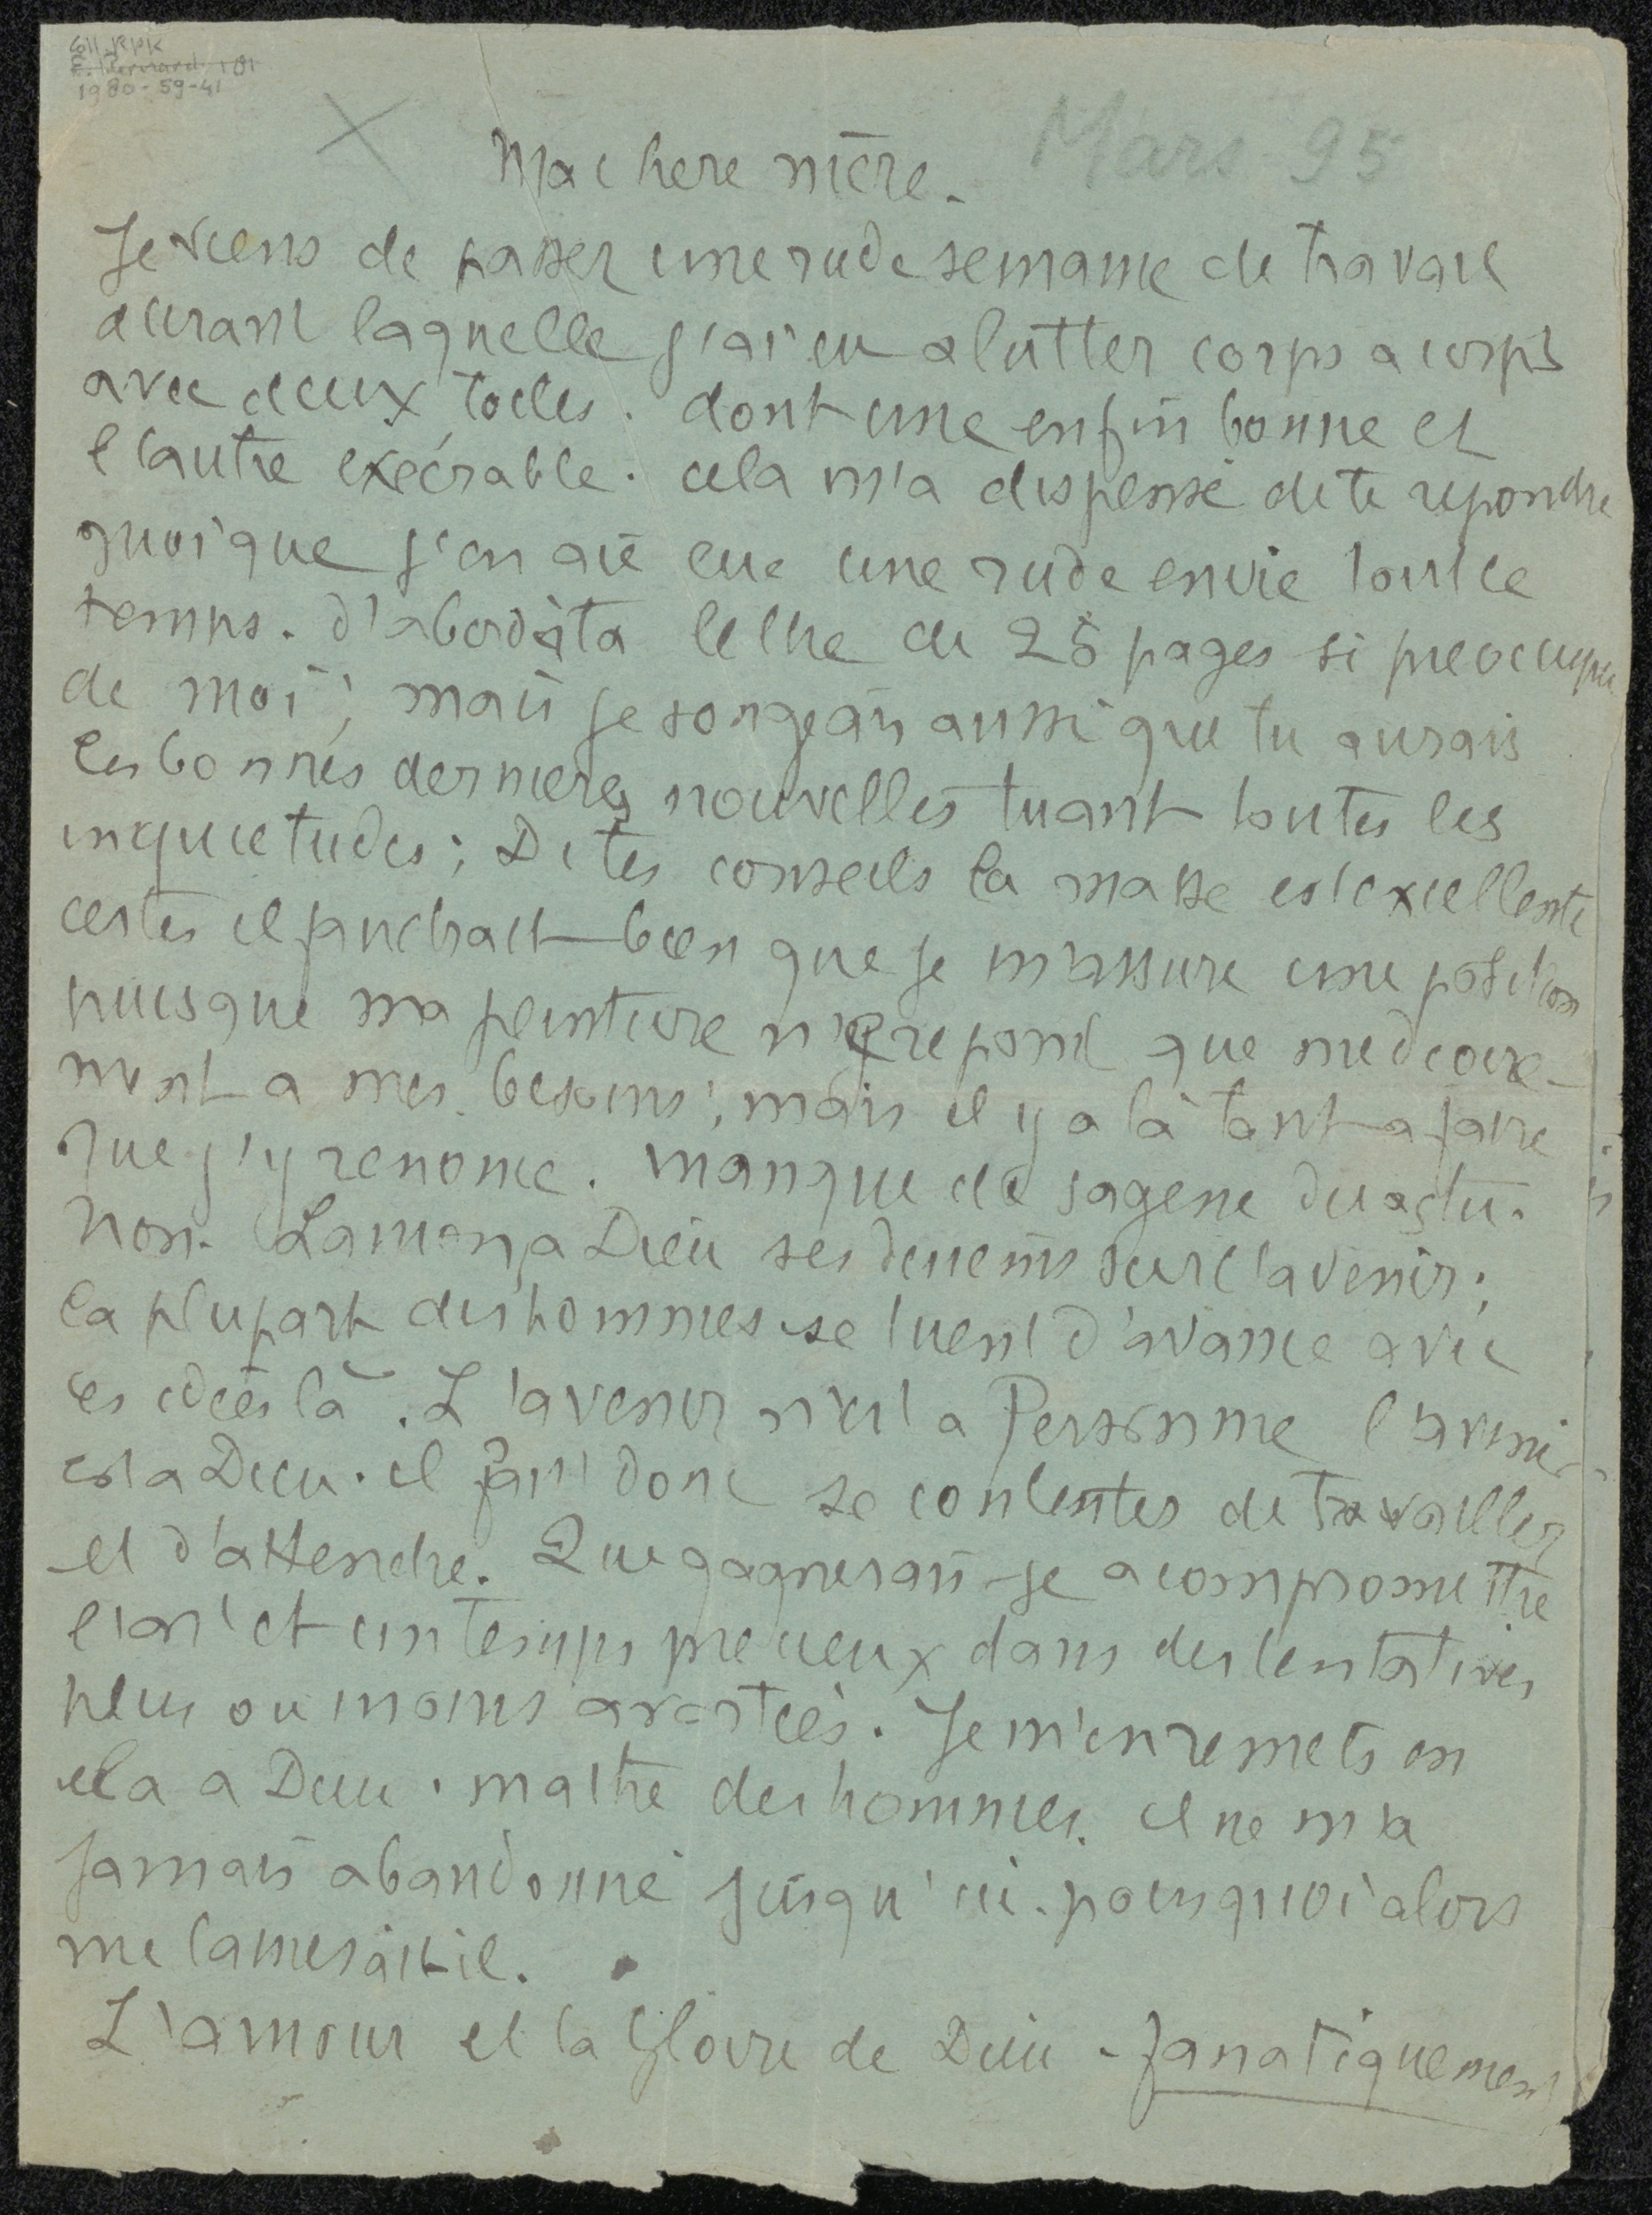 Coll. RPK
E. Bernard 101
1980-59-41
Mars 95
Ma chere mère.
Je viens de passer une rude semaine de travail
durant laquelle j'ai eu a lutter corps a corps
avec deux toiles. dont une enfin bonne et
l'autre exécrable. cela m'a dispensé de te repondre
quoique j'en aie eue une rude envie tout ce
temps. d'abord à ta lettre de 25 pages si preoccupée
de moi; mais je songeais aussi que tu aurais
les bonnes dernieres nouvelles tuant toutes les
inquietudes; De tes conseils la masse est excellente
certes il faudrait bien que je m'assure une position
puisque ma peinture ne repond que mediocre-
ment a mes besoins; mais il y a là tant a faire
que j'y renonce. Manque de sagesse diras tu.
Non. Laissons a Dieu ses desseins sur l'avenir;
la plupart des hommes se tuent d'avance avec
ces idées là. L'avenir n'est a Personne l'avenir
est a Dieu. il faut donc se contenter de travailler
et d'attendre. Que gagnerais-je a compromettre
l'art et un temps precieux dans des tentatives
plus ou moins avortées. Je m'en remets en
cela a Dieu. maitre des hommes. il ne m'a
jamais abandonné jusqu'ici. pourquoi alors
me laisserait-il.
L'amour et la Gloire de Dieu - fanatiquement